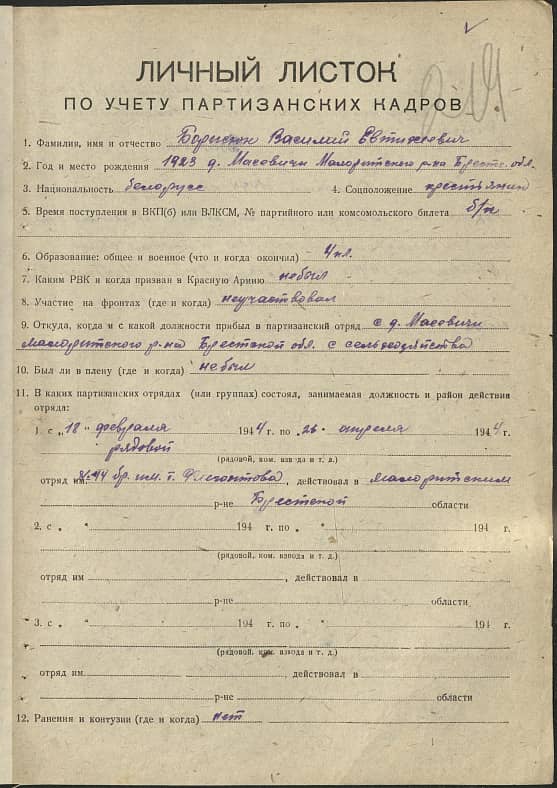 ЛИЧНЫЙ ЛИСТОК
ПО УЧЕТУ ПАРТИЗАНСКИХ КАДРОВ
1. Фамилия, имя и отчество Василий Евтихиевич
2. Год и место рождения 1923 д. Масевичи Малоритского р-на Брестс. обл.
3. Национальность белорусс 4. Соцположение крестьянин
5. Время поступления в ВКП(б) или ВЛКСМ, № партийного или комсомольского билета б/п
6. Образование: общее и военное (что и когда окончил) 4 кл.
7. Каким РВК и когда призван в Красную Армию небыл
8. Участие на фронтах (где и когда) неучаствовал
9. Откуда, когда и с какой должности прибыл в партизанский отряд с д. Масевичи
Малоритского р-на Брестской обл. с сельхозяйства
10. Был ли в плену (где и когда) небыл
11. В каких партизанских отрядах (или группах) состоял, занимаемая должность и район действия
отряда:
1. с „18" февраля 1944 г. по 26 апреля 1944 г.
рядовой
(рядовой, ком. взвода и т. д.)
отряд им. бр. им. т. , действовал в Малоритским
р-не Брестской области
2. с „ " 194 г. по „ " 194 г.
(рядовой, ком. взвода и т. д.)
отряд им , действовал в
р-не области
3. с „ " 194 г. по „ " 194 г.
(рядовой, ком. взвода и т. д.)
отряд им , действовал в
р-не области
12. Ранения и контузии (где и когда) нет